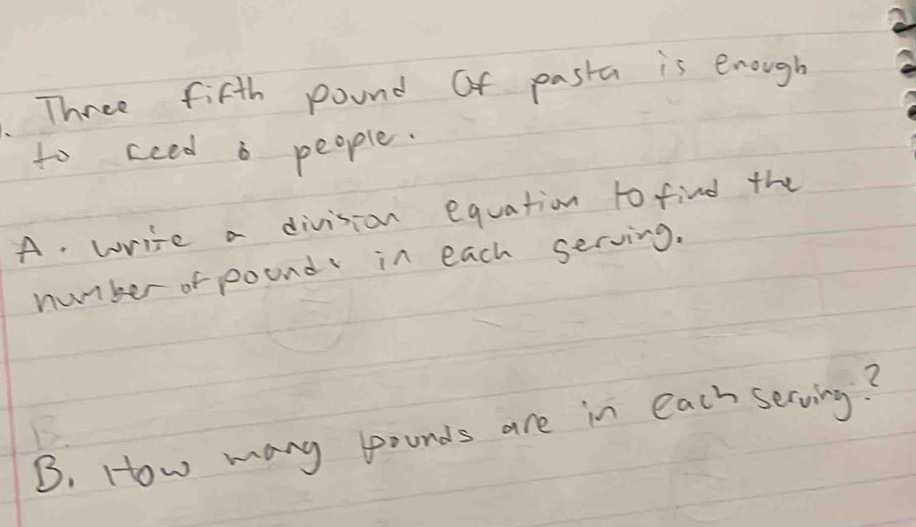 . Three fifth pound of pasta is enough
to feed 6 people.
A. write a division equation to find the
number of pounds in each serving.
B. How many pounds are in each serving?